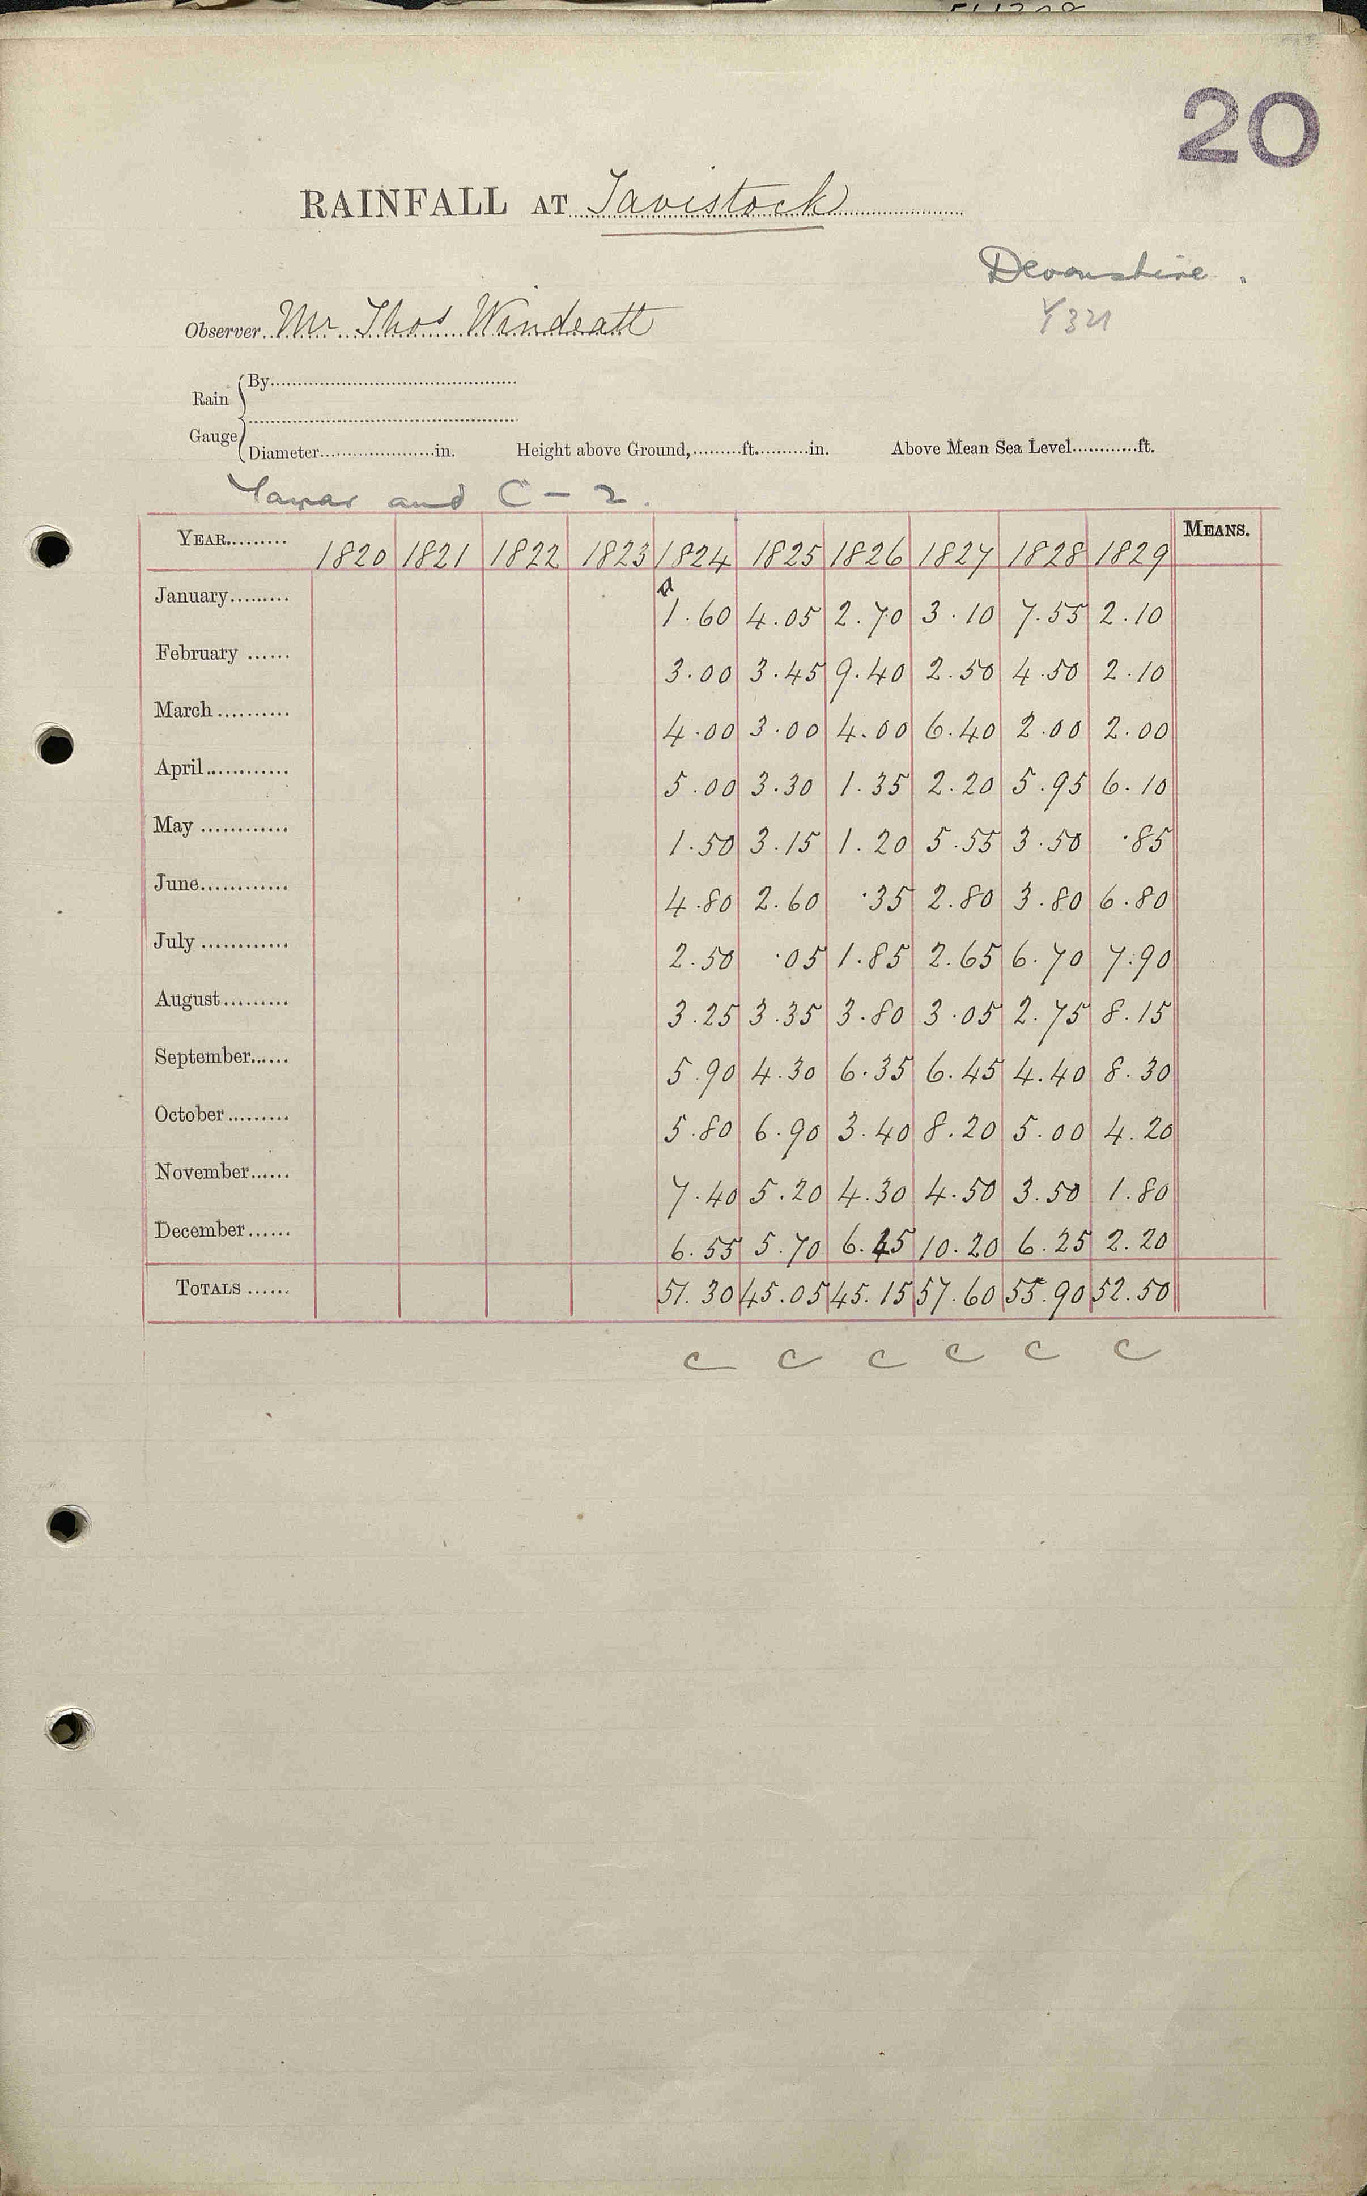 20
RAINFALL AT Tavistock
Devonshire.
Observer Mr Thos Windeatt
Y321
Rain Gauge
By
Diameter in. Height above Ground, ft. in. Above Mean Sea Level ft.
Tamar and C - 2.
YEAR 1820 1821 1822 1823 1824 1825 1826 1827 1828 1829 MEANS.
January 1.60 4.05 2.70 3.10 7.55 2.10
February 3.00 3.45 9.40 2.50 4.50 2.10
March 4.00 3.00 4.00 6.40 2.00 2.00
April 5.00 3.30 1.35 2.20 5.95 6.10
May 1.50 3.15 1.20 5.55 3.50 .85
June 4.80 2.60 .35 2.80 3.80 6.80
July 2.50 .05 1.85 2.65 6.70 7.90
August 3.25 3.35 3.80 3.05 2.75 8.15
September 5.90 4.30 6.35 6.45 4.40 8.30
October 5.80 6.90 3.40 8.20 5.00 4.20
November 7.40 5.20 4.30 4.50 3.50 1.80
December 6.55 5.70 6.45 10.20 6.25 2.20
TOTALS 51.30 45.05 45.15 57.60 55.90 52.50
c c c c c c